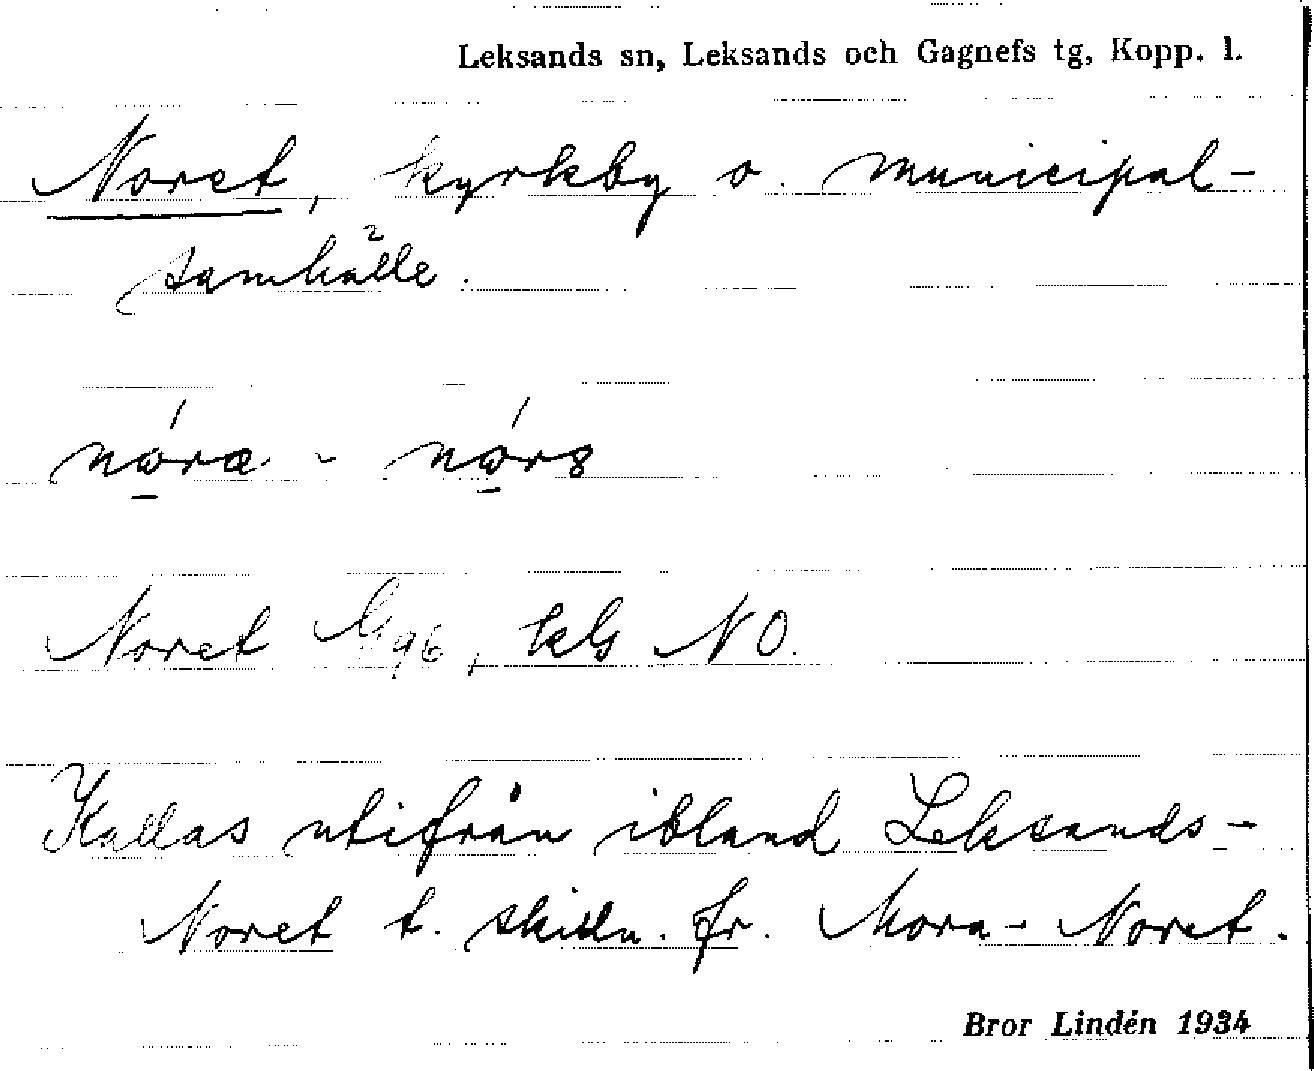 Leksands sn, Leksands och Gagnefs tg, Kopp. l.
Noret, kyrkby o. municipal-
samhälle.
Noret G96, kG NO.
Kallas utifrån ibland Leksands-
Noret t. skilln. fr. Mora-Noret.
Bror Lindén 1934